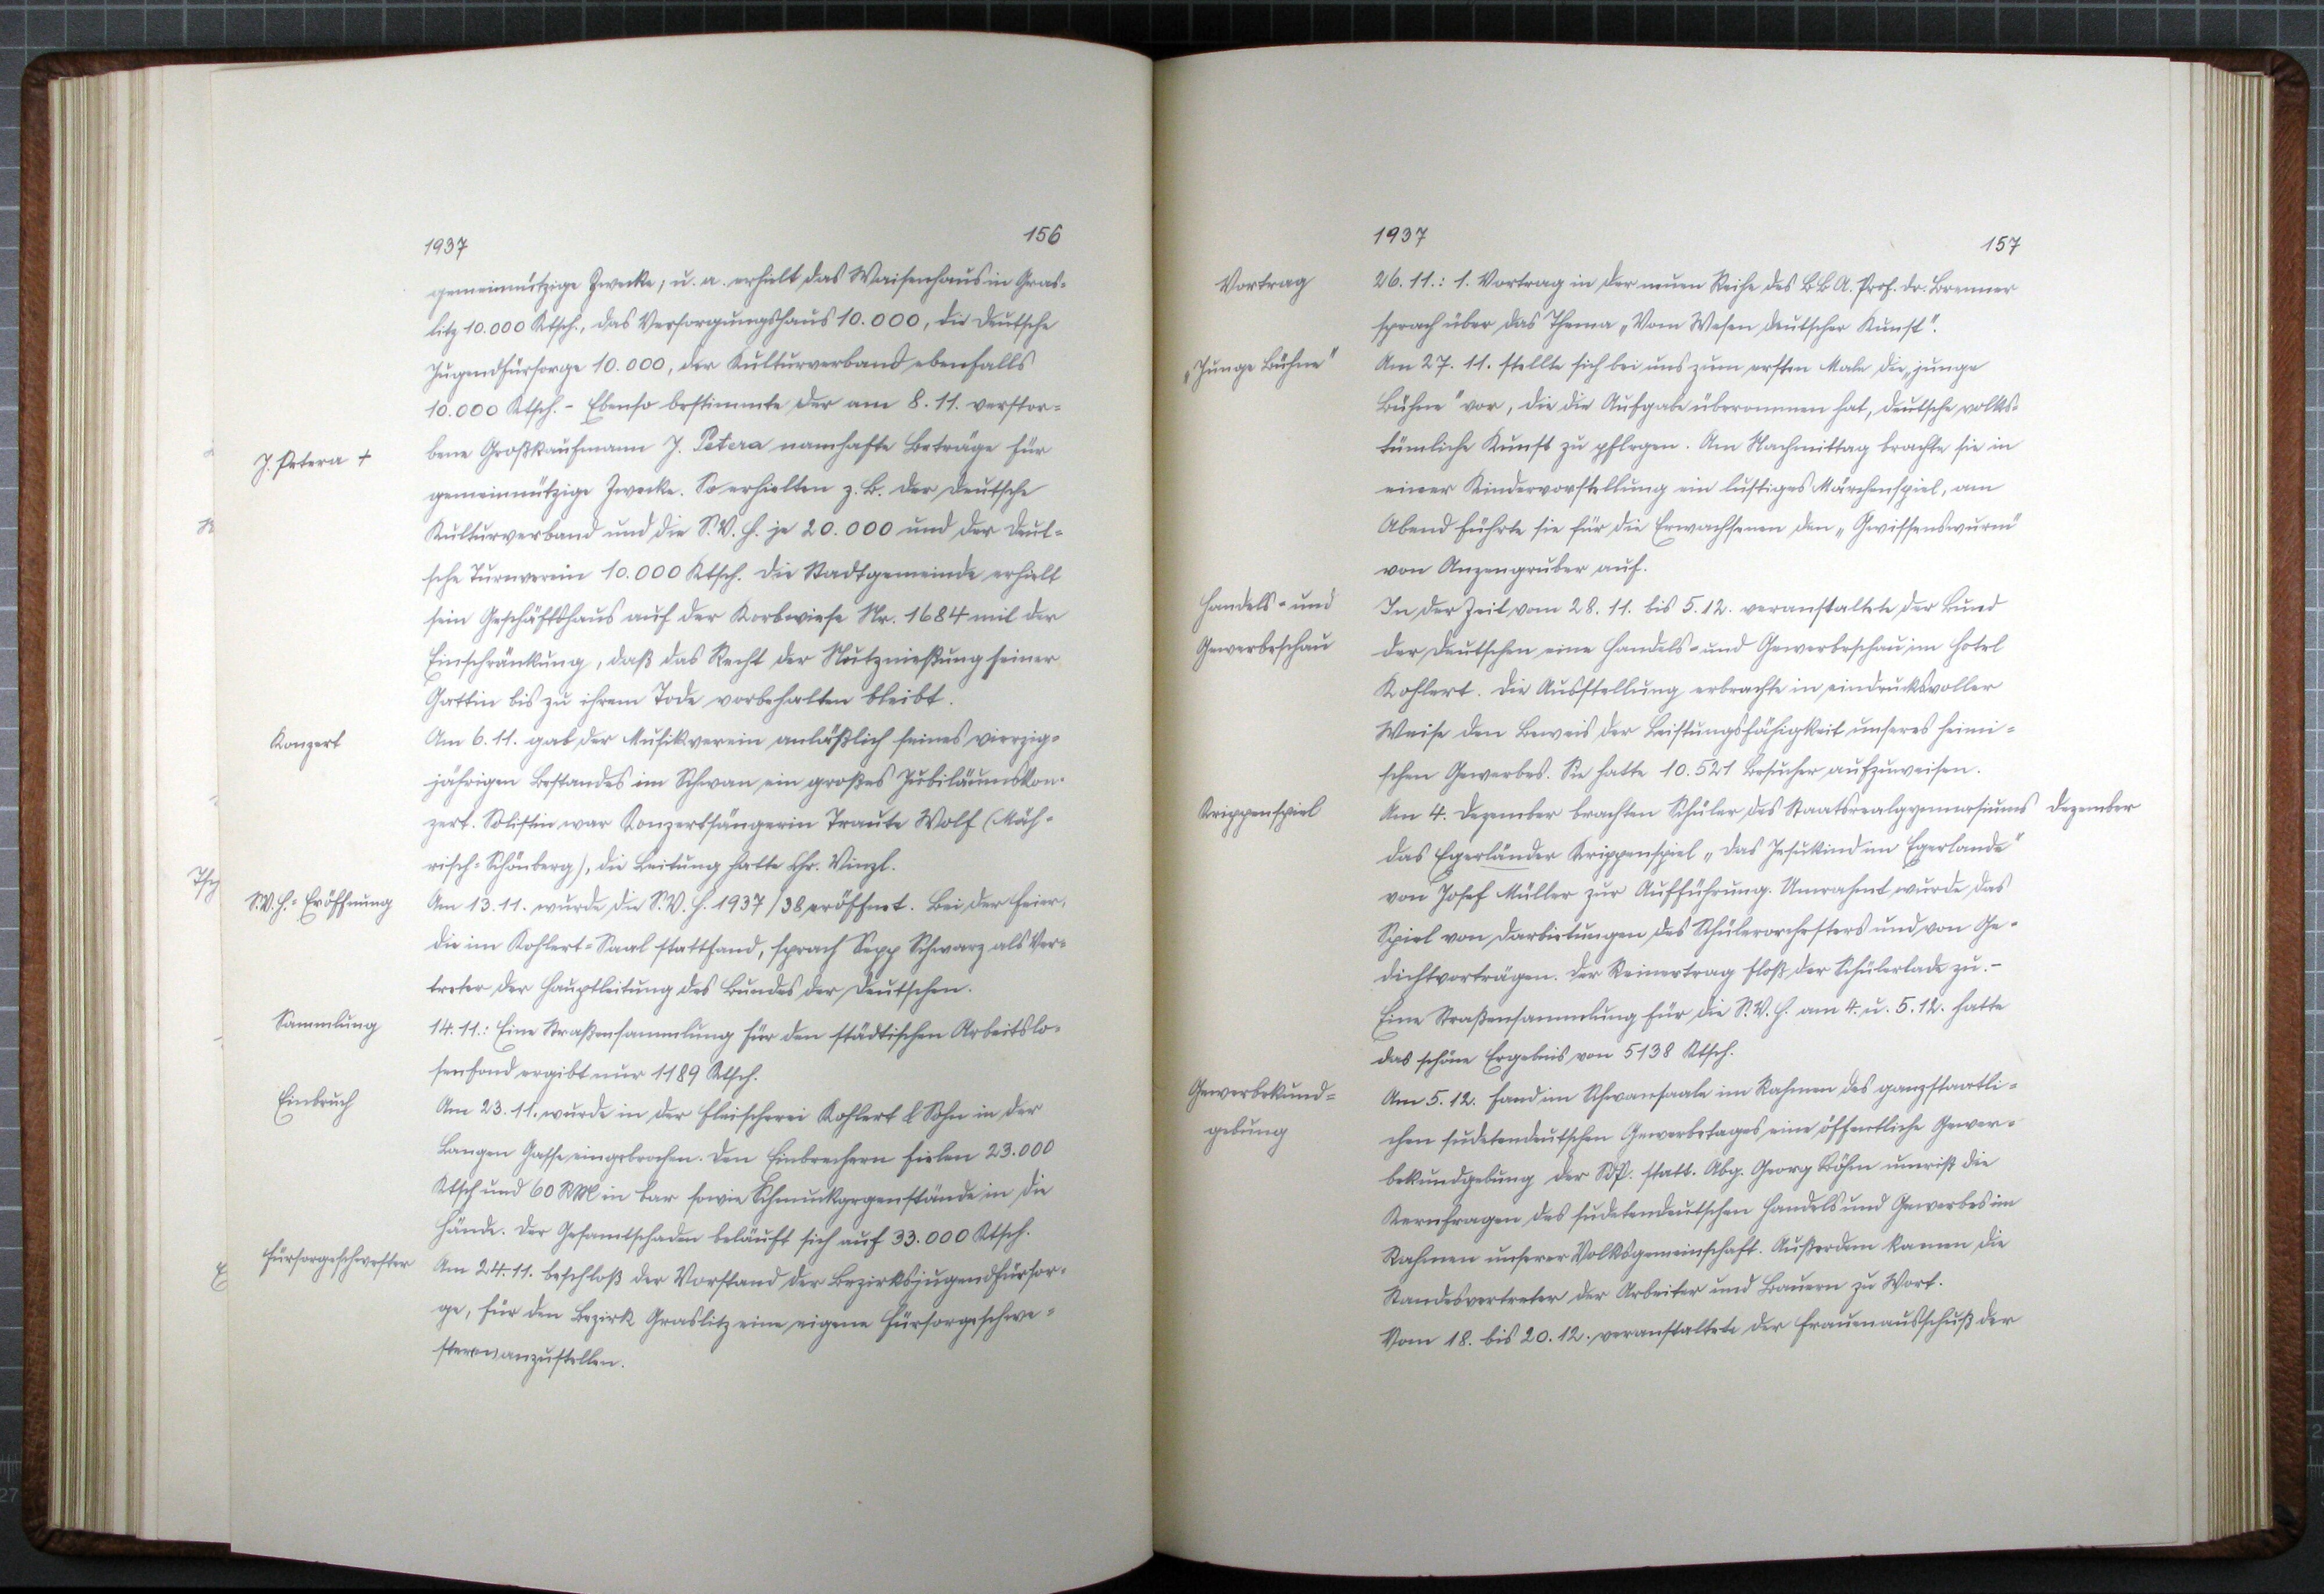 1937
156
gemeinnützige Zwecke, u. a. erhielt das Waisenhaus in Gras-
litz 10.000 Ktsch., das Versorgungshaus 10.000, die Deutsche
Jugendfürsorge 10.000, der Kulturverband ebenfalls
10.000 Ktsch. - Ebenso bestimmte der am 8. 11. verstor-
J. Petera +
bene Großkaufmann J. Petera namhafte Beträge für
gemeinnützige Zwecke. So erhielten z. B. der Deutsche
Kulturverband und die S.V.H. je 20.000 und der Deut-
sche Turnverein 10.000 Ktsch. Die Stadtgemeinde erhielt
sein Geschäftshaus auf der Korbwiese Nr. 1684 mit der
Einschränkung, daß das Recht der Nutznießung seiner
Gattin bis zu ihrem Tode vorbehalten bleibt.
Konzert
Am 6. 11. gab der Musikverein anläßlich seines vierzig-
jährigen Bestandes im Schwan ein großes Jubiläumskon-
zert. Solistin war Konzertsängerin Traute Wolf (Mäh-
risch-Schönberg), die Leitung hatte Chr. Vinzl.
S.V.H.-Eröffnung
Am 13. 11. wurde die S.V.H. 1937/38 eröffnet. Bei der Feier,
die im Kohlert-Saal stattfand, sprach Sepp Schwarz als Ver-
treter der Hauptleitung des Bundes der Deutschen.
Sammlung
14. 11.: Eine Straßensammlung für den städtischen Arbeitslo-
senfond ergibt nur 1189 Ktsch.
Einbruch
Am 23. 11. wurde in der Fleischerei Kohlert & Sohn in der
Langen Gasse eingebrochen. Den Einbrechern fielen 23.000
Ktsch und 60 RM in bar sowie Schmuckgegenstände in die
Hände. Der Gesamtschaden beläuft sich auf 33.000 Ktsch.
Fürsorgeschwester
Am 24. 11. beschloß der Vorstand der Bezirksjugendfürsor-
ge, für den Bezirk Graslitz eine eigene Fürsorgeschwe-
ster anzustellen.
1937
157
Vortrag
26. 11.: 1. Vortrag in der neuen Reihe des B B A. Prof. Dr. Brenner
sprach über das Thema „Vom Wesen deutscher Kunst".
„Junge Bühne"
Am 27. 11. stellte sich bei uns zum ersten Male die „junge
Bühne" vor, die die Aufgabe übernommen hat, deutsche volks-
tümliche Kunst zu pflegen. Am Nachmittag brachte sie in
einer Kindervorstellung ein lustiges Märchenspiel, am
Abend führte sie für die Erwachsenen den „Gewissenswurm"
von Anzengruber auf.
Handels- und
Gewerbeschau
In der Zeit vom 28. 11. bis 5. 12. veranstaltete der Bund
der Deutschen eine Handels- und Gewerbeschau im Hotel
Kohlert. Die Ausstellung erbrachte in eindrucksvoller
Weise den Beweis der Leistungsfähigkeit unseres heimi-
schen Gewerbes. Sie hatte 10.521 Besucher aufzuweisen.
Krippenspiel
Am 4. Dezember brachten Schüler des Staatsrealgymnasiums Dezember
das Egerländer Krippenspiel „Das Jesukind im Egerlande"
von Josef Müller zur Aufführung. Umrahmt wurde das
Spiel von Darbietungen des Schülerorchesters und von Ge-
dichtvorträgen. Der Reinertrag floß der Schülerlade zu. -
Eine Straßensammlung für die S.V.H. am 4. u. 5. 12. hatte
das schöne Ergebnis von 5138 Ktsch.
Gewerbekund-
gebung
Am 5. 12. fand im Schwansaale im Rahmen des ganzstaatli-
chen sudetendeutschen Gewerbetages eine öffentliche Gewer-
bekundgebung der SdP. statt. Abg. Georg Böhm umriß die
Kernfragen des sudetendeutschen Handels und Gewerbes im
Rahmen unserer Volksgemeinschaft. Außerdem kamen die
Standesvertreter der Arbeiter und Bauern zu Wort.
Vom 18. bis 20. 12. veranstaltete der Frauenausschuß der